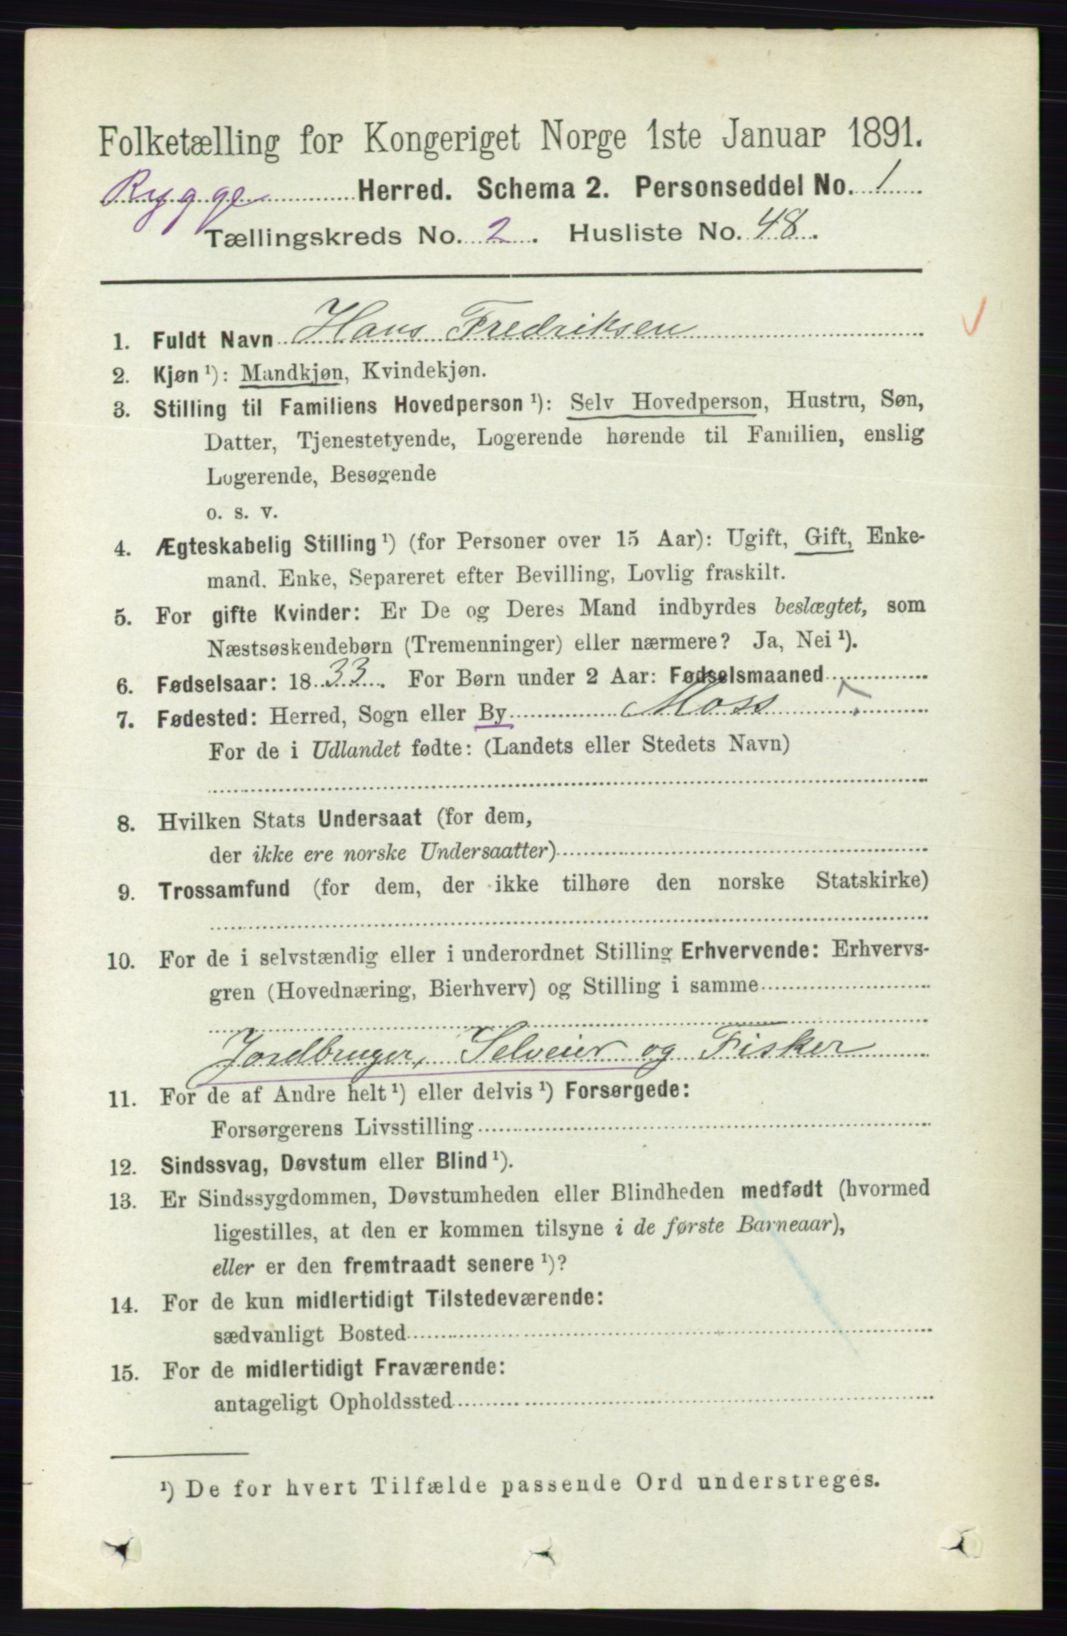 Folketælling for Kongeriget Norge 1ste Januar 1891.
Rygge Herred. Schema 2. Personseddel No. 1
Tællingskreds No. 2. Husliste No. 48.
1. Fuldt Navn Hans Fredriksen
2. Kjøn ¹): Mandkjøn, Kvindekjøn.
3. Stilling til Familiens Hovedperson ¹): Selv Hovedperson, Hustru, Søn,
Datter, Tjenestetyende, Logerende hørende til Familien, enslig
Logerende, Besøgende
o. s. v.
4. Ægteskabelig Stilling ¹) (for Personer over 15 Aar): Ugift, Gift, Enke-
mand, Enke, Separeret efter Bevilling, Lovlig fraskilt.
5. For gifte Kvinder: Er De og Deres Mand indbyrdes beslægtet, som
Næstsøskendebørn (Tremenninger) eller nærmere? Ja, Nei ¹).
6. Fødselsaar: 1833. For Børn under 2 Aar: Fødselsmaaned
7. Fødested: Herred, Sogn eller By Moss
For de i Udlandet fødte: (Landets eller Stedets Navn)
8. Hvilken Stats Undersaat (for dem,
der ikke ere norske Undersaatter)
9. Trossamfund (for dem, der ikke tilhøre den norske Statskirke)
10. For de i selvstændig eller i underordnet Stilling Erhvervende: Erhvervs-
gren (Hovednæring, Bierhverv) og Stilling i samme
Jordbruger, Selveier og Fisker
11. For de af Andre helt ¹) eller delvis ¹) Forsørgede:
Forsørgerens Livsstilling
12. Sindssvag, Døvstum eller Blind ¹).
13. Er Sindssygdommen, Døvstumheden eller Blindheden medfødt (hvormed
ligestilles, at den er kommen tilsyne i de første Barneaar),
eller er den fremtraadt senere ¹)?
14. For de kun midlertidigt Tilstedeværende:
sædvanligt Bosted
15. For de midlertidigt Fraværende:
antageligt Opholdssted
¹) De for hvert Tilfælde passende Ord understreges.